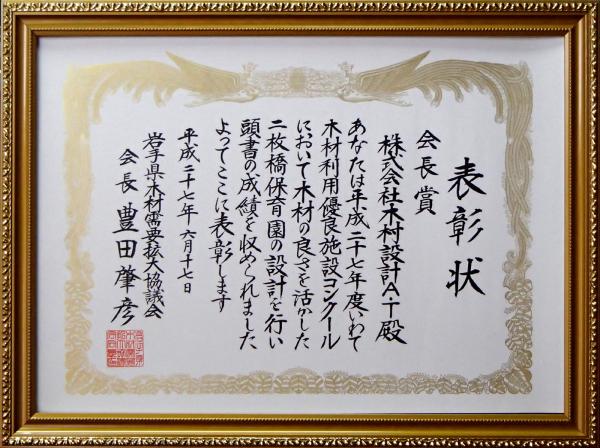 表彰状
会長賞
株式会社木村設計A・T殿
あなたは平成二十七年度いわて
木材利用優良施設コンクール
において木材の良さを活かした
二枚橋保育園の設計を行い
頭書の成績を収められました
よってここに表彰します
平成二十七年六月十七日
岩手県木材需要拡大協議会
会長 豊田肇彦